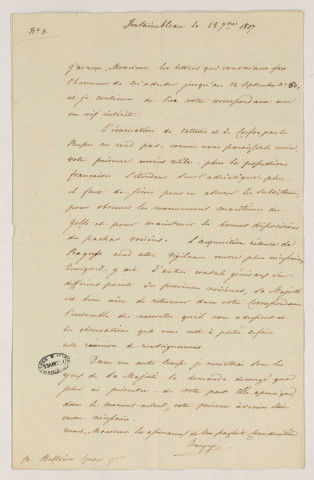 Fontainebleau le 28 7bre 1807
j'ai reçu, Monsieur, les lettres que vous m'avez fait
l'honneur de m'adresser jusqu'au 12 Septembre
et je continue de lire votre correspondance avec
un vif intérêt.
L'évacuation de Cattaro et de Corfou par les
Russes ne rend pas, comme vous paraissez croire,
votre présence moins utile. plus les possessions
françaises s'étendent sur l'adriatique, plus
il faut de soins pour en assurer les subsistances,
pour observer les mouvements maritimes du
Golfe et pour maintenir les bonnes dispositions
des pachas voisins. L'acquisition de
Raguse rend cette vigilance encore plus nécessaire,
quoiqu'il y ait d'autres consuls généraux sur
différents points des provinces voisines, Sa Majesté
est bien aise de retrouver dans votre correspondance
l'ensemble des nouvelles qu'ils vous adressent et
les observations que vous met à portée de faire
cette réunion de renseignements.
Dans un autre temps je remettrai sous les
yeux de Sa Majesté la demande de congé que
plus au prévenu de votre part. Elle
dans le moment actuel, votre présence à
nécessaire.
Monsieur, les assurances de ma parfaite considération